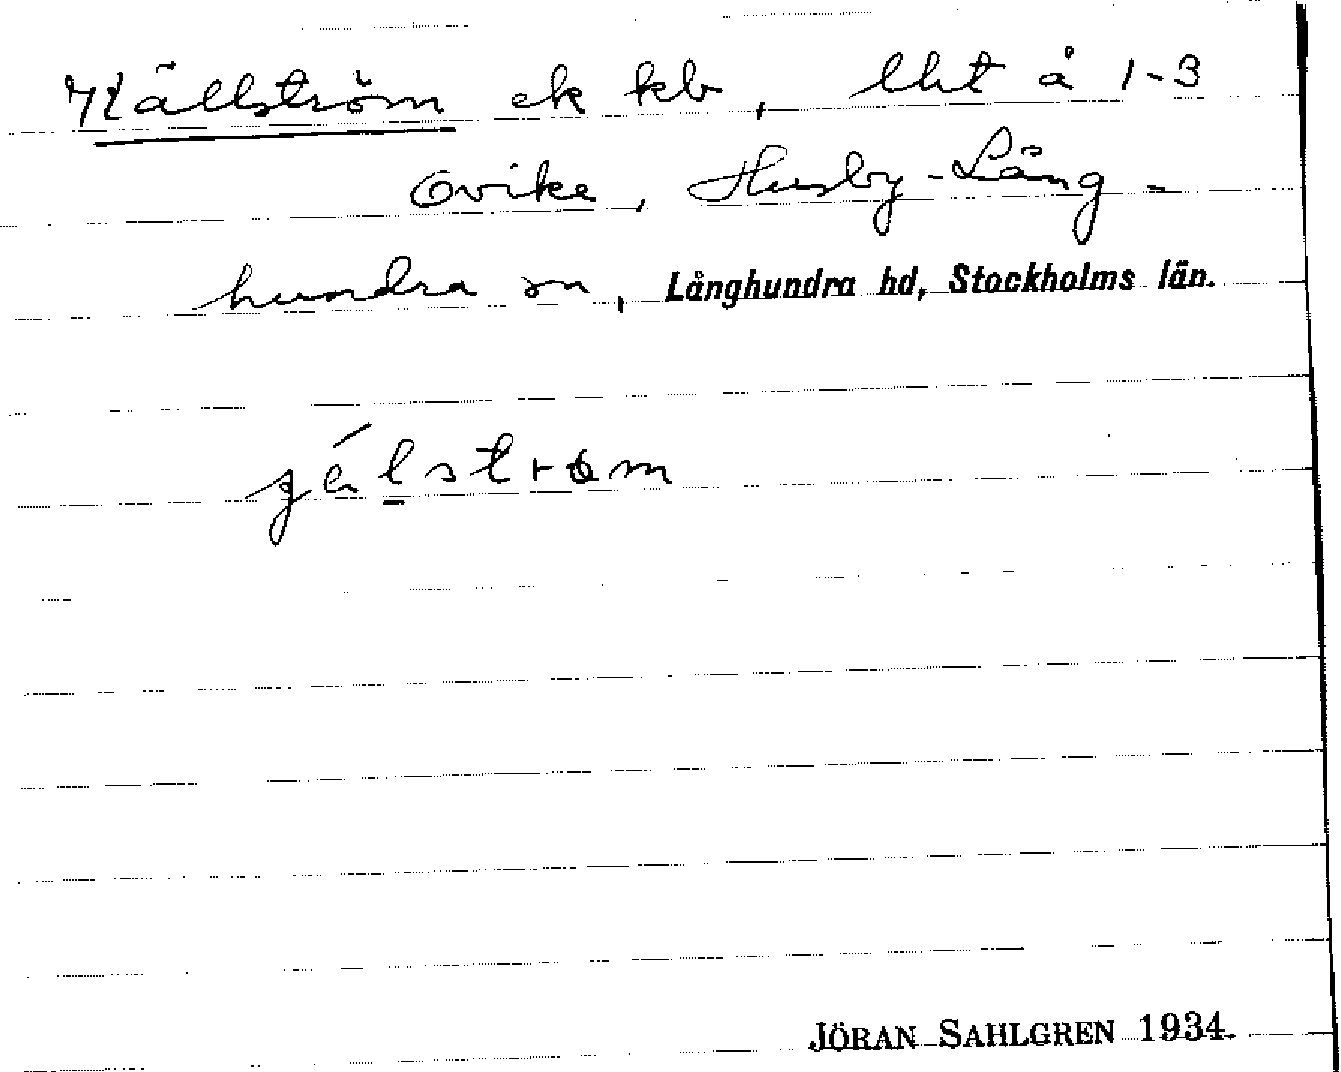 Källström ek kb, lht å 1-3
Ovike, Husby-Lång-
hundra sn, Långhundra hd, Stockholms län.
JÖRAN SAHLGREN 1934.